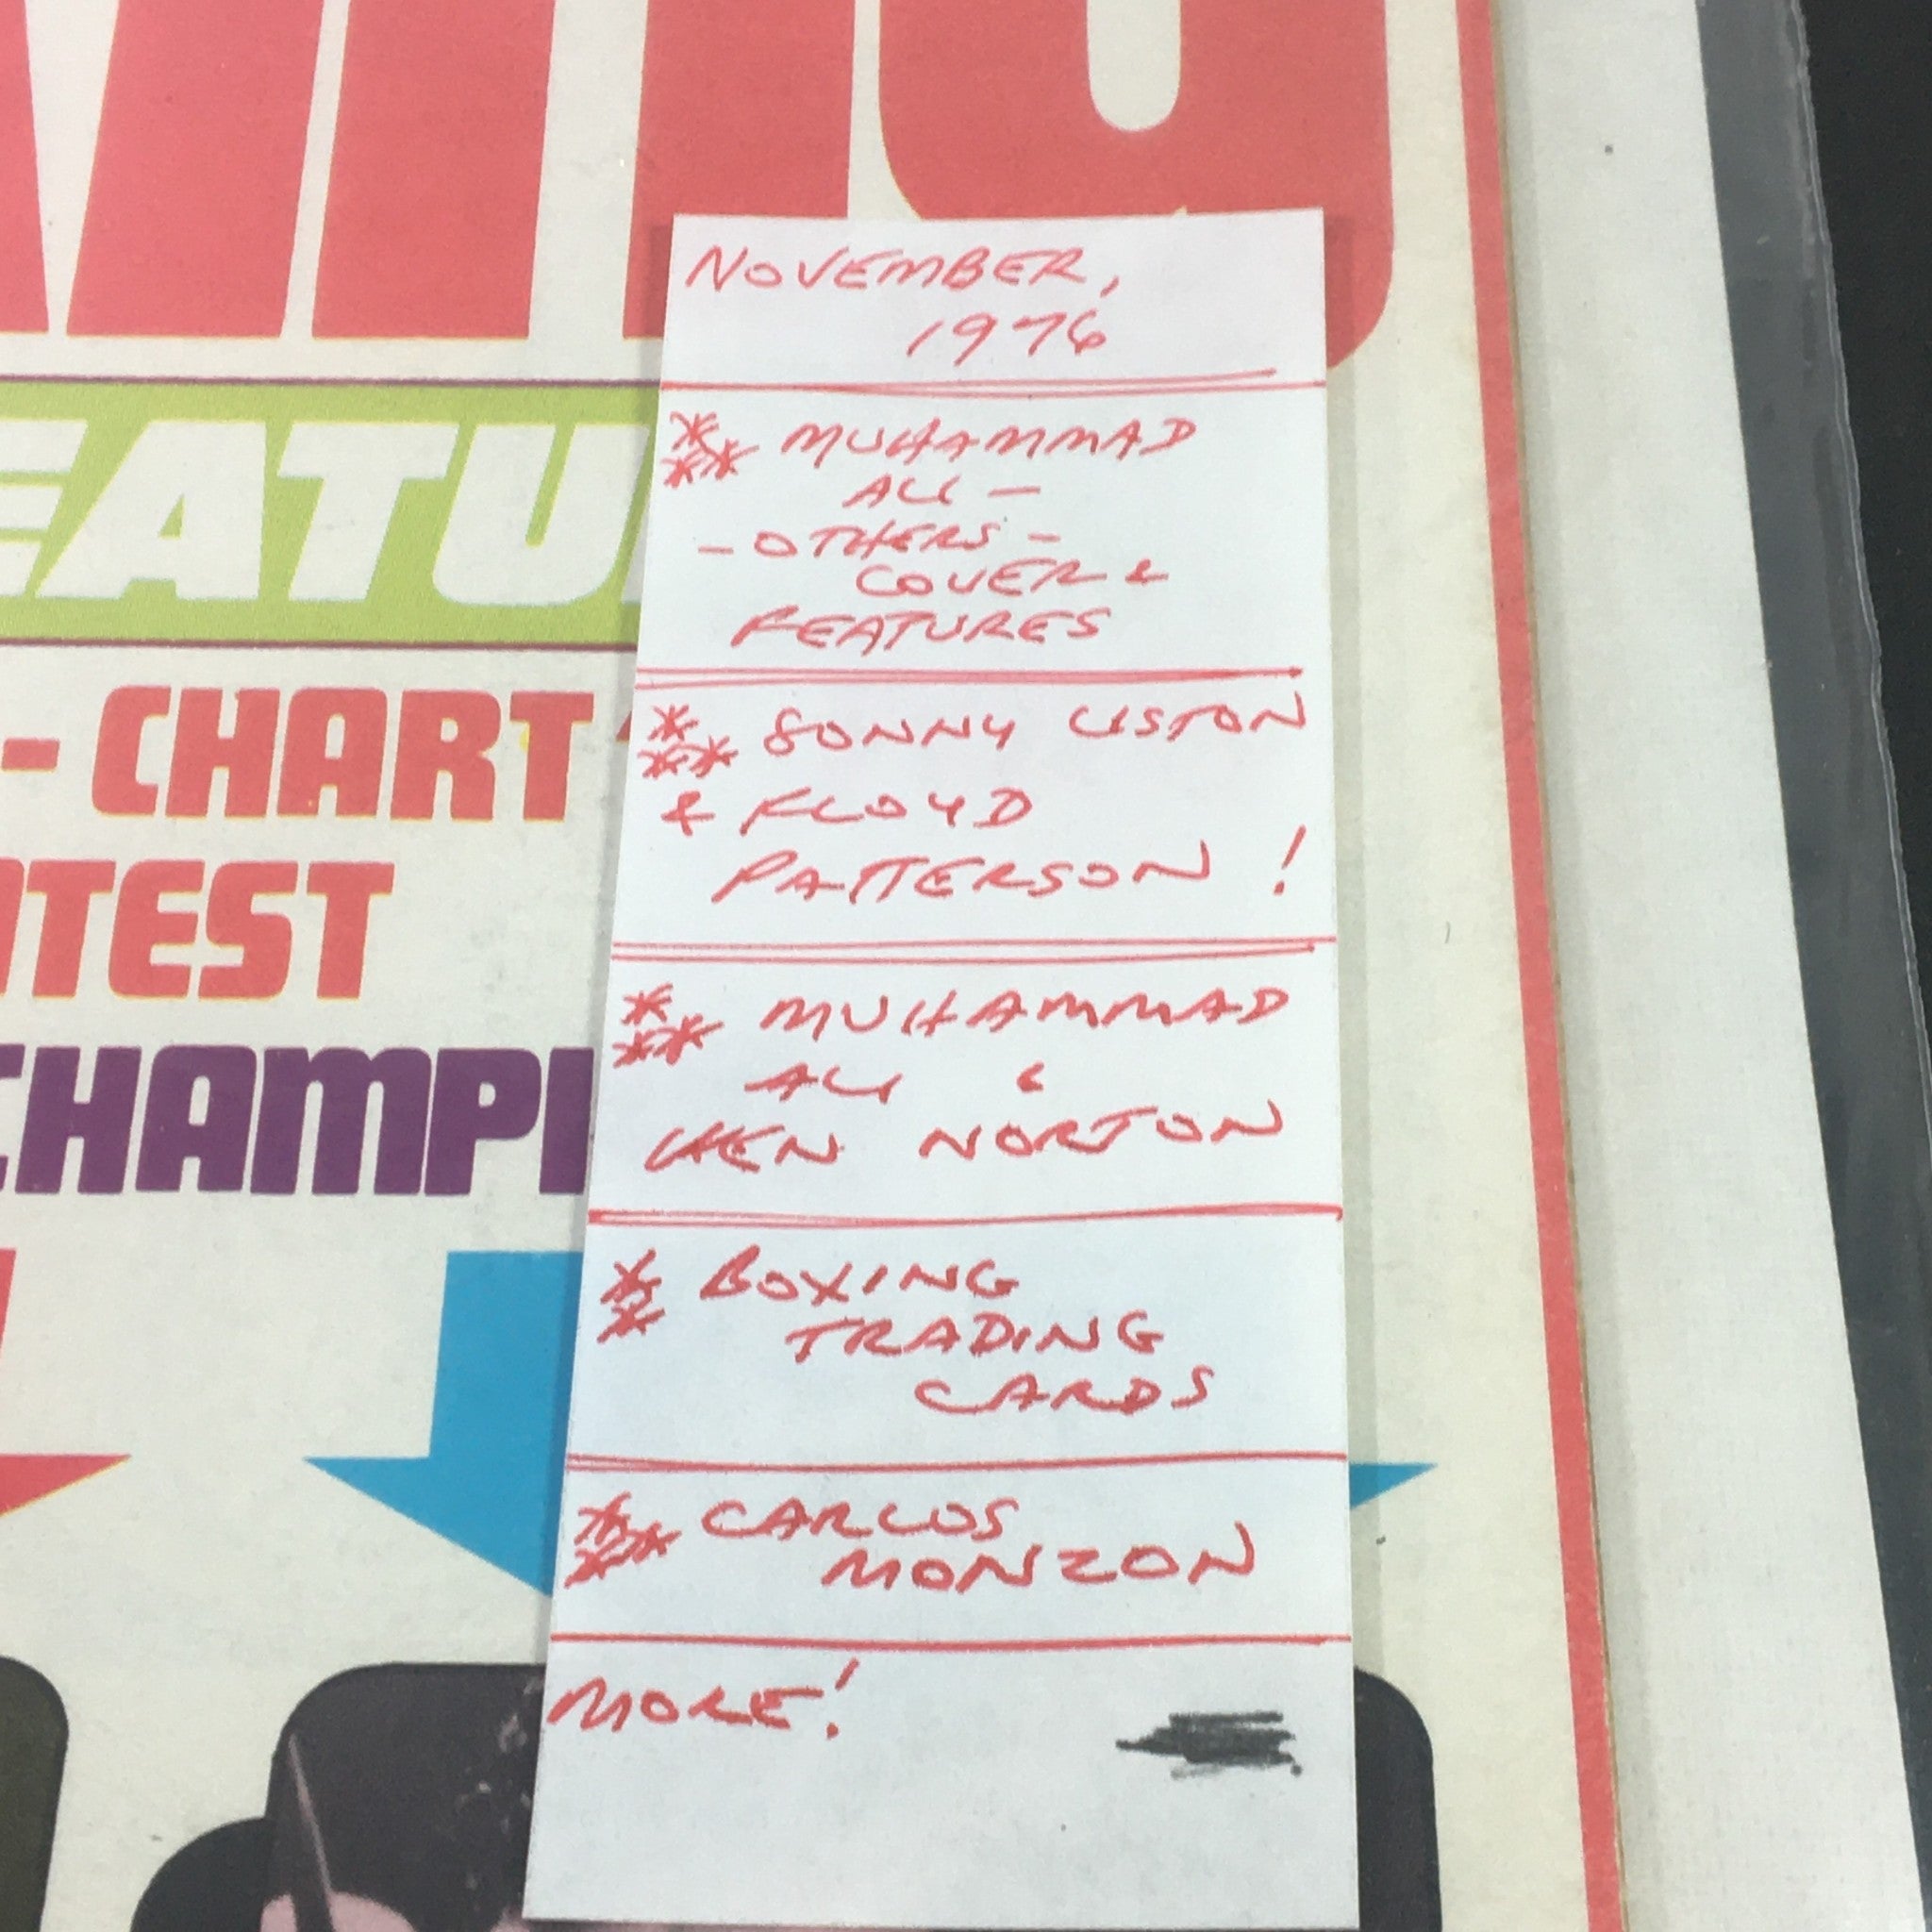 EATU
- CHART
TEST
CHAMPI
NOVEMBER,
1976
*** MUHAMMAD
ALI -
- OTHERS -
COVER &
FEATURES
*** SONNY LISTON
& FLOYD
PATTERSON !
*** MUHAMMAD
ALI &
KEN NORTON
** BOXING
TRADING
CARDS
*** CARLOS
MONZON
MORE!